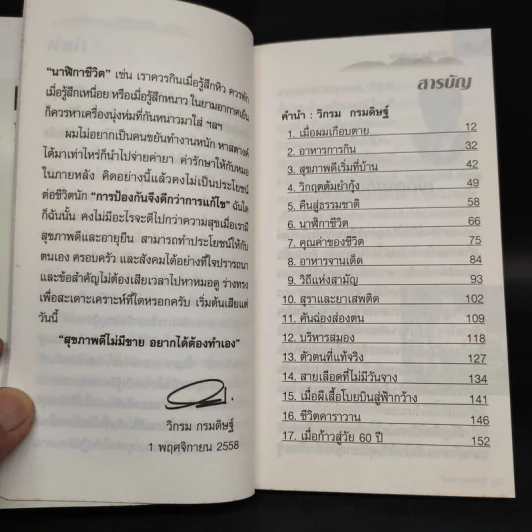 "นาฬิกาชีวิต" เช่น เราควรกินเมื่อรู้สึกหิว ควรพัก
เมื่อรู้สึกเหนื่อย หรือเมื่อรู้สึกหนาว ในยามอากาศเย็น
ก็ควรหาเครื่องนุ่งห่มที่กันหนาวมาใส่ ฯลฯ
ผมไม่อยากเป็นคนขยันทำงานหนัก หาสตางค์
ได้มาเท่าไหร่ก็นำไปจ่ายค่ายา ค่ารักษาให้กับหมอ
ในภายหลัง คิดอย่างนี้แล้วคงไม่เป็นประโยชน์
ต่อชีวิตนัก "การป้องกันจึงดีกว่าการแก้ไข" ฉันใด
ก็ฉันนั้น คงไม่มีอะไรจะดีไปกว่าความสุขเมื่อเรามี
สุขภาพดีและอายุยืน สามารถทำประโยชน์ให้กับ
ตนเอง ครอบครัว และสังคมได้อย่างที่ใจปรารถนา
และข้อสำคัญไม่ต้องเสียเวลาไปหาหมอดู ร่างทรง
เพื่อสะเดาะเคราะห์ที่ใดหรอกครับ เริ่มต้นเสียแต่
วันนี้
"สุขภาพดีไม่มีขาย อยากได้ต้องทำเอง"
วิกรม กรมดิษฐ์
1 พฤศจิกายน 2558
สารบัญ
คำนำ : วิกรม กรมดิษฐ์
1. เมื่อผมเกือบตาย 12
2. อาหารการกิน 32
3. สุขภาพดีเริ่มที่บ้าน 42
4. วิกฤตต้มยำกุ้ง 49
5. คืนสู่ธรรมชาติ 58
6. นาฬิกาชีวิต 66
7. คุณค่าของชีวิต 75
8. อาหารจานเด็ด 84
9. วิถีแห่งสามัญ 93
10. สุราและยาเสพติด 102
11. คันฉ่องส่องตน 109
12. บริหารสมอง 118
13. ตัวตนที่แท้จริง 127
14. สายเลือดที่ไม่มีวันจาง 134
15. เมื่อผีเสื้อโบยบินสู่ฟ้ากว้าง 141
16. ชีวิตคาราวาน 146
17. เมื่อก้าวสู่วัย 60 ปี 152